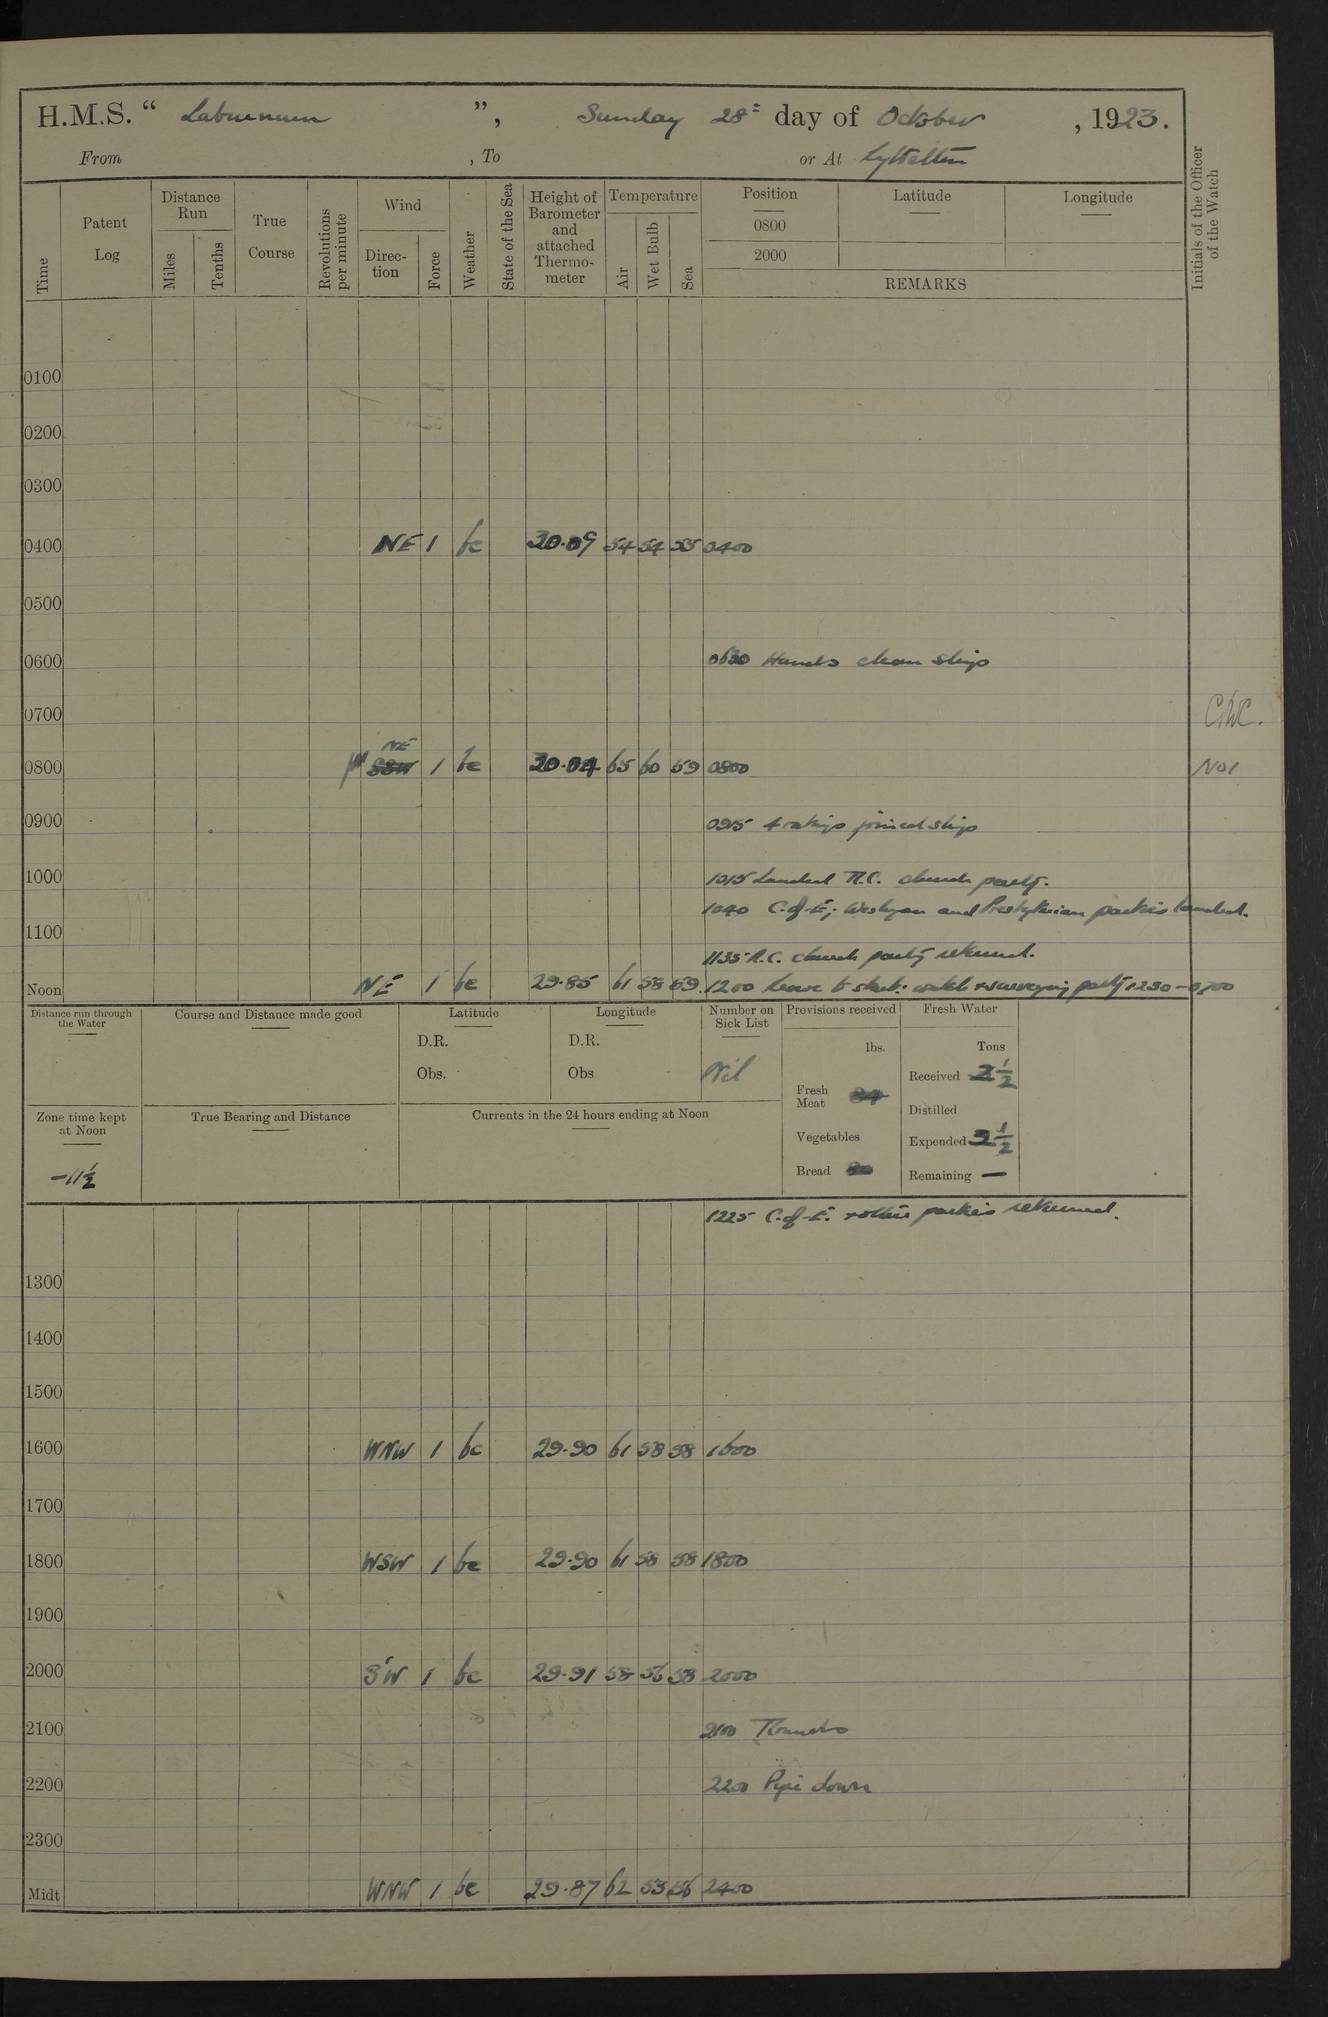 H.M.S. “ Laburnum ”, Sunday 28th day of October , 1923.
From , To or At Lyttelton
Time
Patent Log
Distance Run
Miles
Tenths
True Course
Revolutions per minute
Wind
Direc-tion
Force
Weather
State of the Sea
Height of Barometer and attached Thermo-meter
Temperature
Air
Wet Bulb
Sea
Position
0800
2000
Latitude
Longitude
REMARKS
Initials of the Officer of the Watch
0100
0200
0300
0400 NE 1 bc 30.09 54 54 55 0400
0500
0600 0630 Hands clean ship
0700 CWC.
0800 SSW NE 1 bc 30.04 65 60 59 0800
0900 0915 4 ratings joined ship
1000 1015 Landed R.C. church party.
1040 C.of.E, Wesleyan and Presbyterian parties landed.
1100 1135 R.C. church party returned.
Noon NE 1 bc 29.85 61 58 59 1200 Leave to starb: watch & surveying party 1230-0700
Distance run through the Water
Course and Distance made good
Latitude
D.R.
Obs.
Longitude
D.R.
Obs.
Number on Sick List
Nil
Provisions received
lbs.
Fresh Meat
Vegetables
Bread
Fresh Water
Tons
Received 3 1/2
Distilled
Expended 3 1/2
Remaining —
Zone time kept at Noon
-11 1/2
True Bearing and Distance
Currents in the 24 hours ending at Noon
1225 C.of.E. & other parties returned.
1300
1400
1500
1600 WNW 1 bc 29.90 61 58 58 1600
1700
1800 WSW 1 bc 29.90 61 58 58 1800
1900
2000 S'W 1 bc 29.91 58 56 58 2000
2100 2100 Rounds
2200 2200 Pipe down
2300
Midt WNW 1 bc 29.87 62 53 56 2400